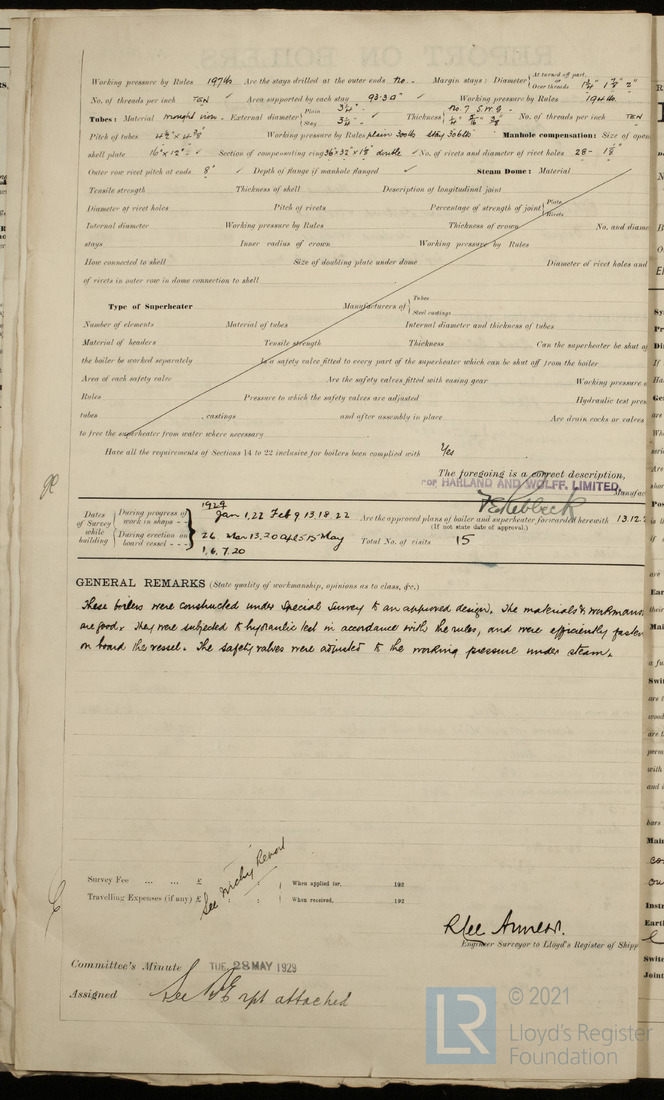 Working pressure by Rules 197 lb Are the stays drilled at the outer ends No. - Margin stays: Diameter { At turned off part, Over threads 1¾" 1⅞" 2"
No. of threads per inch TEN ✓ Area supported by each stay 93.30" ✓ Working pressure by Rules 194 lb.
Tubes: Material Wrought iron - External diameter { Plain 3¼" - Stay 3¼" - Thickness { No. 7 S.W.G. - ¼" 5/16" ⅜" No. of threads per inch TEN
Pitch of tubes 4½" x 4⅜" Working pressure by Rules plain 300 lb stay 306 lb ✓ Manhole compensation: Size of open
shell plate 16" x 12" - ✓ Section of compensating ring 36" x 32" x 1⅛" double ✓ No. of rivets and diameter of rivet holes 28 - 1⅛"
Outer row rivet pitch at ends 8" ✓ Depth of flange if manhole flanged ✓ Steam Dome: Material
Tensile strength Thickness of shell Description of longitudinal joint
Diameter of rivet holes Pitch of rivets Percentage of strength of joint { Plate Rivets
Internal diameter Working pressure by Rules Thickness of crown No. and diame
stays Inner radius of crown Working pressure by Rules
How connected to shell Size of doubling plate under dome Diameter of rivet holes and
of rivets in outer row in dome connection to shell
Type of Superheater Manufacturers of { Tubes Steel castings
Number of elements Material of tubes Internal diameter and thickness of tubes
Material of headers Tensile strength Thickness Can the superheater be shut o
the boiler be worked separately Is a safety valve fitted to every part of the superheater which can be shut off from the boiler
Area of each safety valve Are the safety valves fitted with easing gear Working pressure
Rules Pressure to which the safety valves are adjusted Hydraulic test pres
tubes , castings and after assembly in place Are drain cocks or valves
to free the superheater from water where necessary
Have all the requirements of Sections 14 to 22 inclusive for boilers been complied with Yes
The foregoing is a correct description,
FOR HARLAND AND WOLFF, LIMITED, Manufac
Dates of Survey while building { During progress of work in shops - - 1929 Jan 1,22 Feb 9.13.18.22 Are the approved plans of boiler and superheater forwarded herewith 13.12.
(If not state date of approval.)
During erection on board vessel - - - 26 Mar 13.20 Apl 5.15 May 1.6.7.20 Total No. of visits 15
GENERAL REMARKS (State quality of workmanship, opinions as to class, &c.)
These boilers were constructed under Special Survey to an approved design. The materials & workmans
are good. They were subjected to hydraulic test in accordance with the rules, and were efficiently fasten
on board the vessel. The safety valves were adjusted to the working pressure under steam.
See Mchy Report
Survey Fee ... ... £ : : When applied for, 192
Travelling Expenses (if any) £ : : When received, 192
Engineer Surveyor to Lloyd's Register of Shipp
Committee's Minute TUE. 28 MAY 1929
Assigned See rpt attached
LR © 2021
Lloyd's Register
Foundation